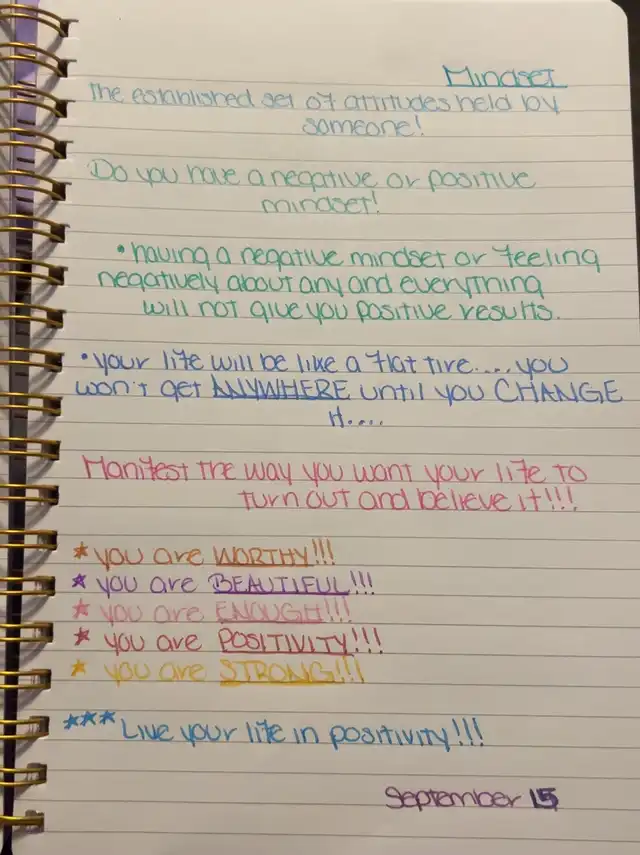 Mindset
The established set of attitudes held by
someone!
Do you have a negative or positive
mindset!
• having a negative mindset or feeling
negatively about any and everything
will not give you positive results.
• your life will be like a flat tire.... you
won't get ANYWHERE until you CHANGE
it....
Manifest the way you want your life to
turn out and believe it!!!
* you are WORTHY!!!
* you are BEAUTIFUL!!!
* you are ENOUGH!!!
* you are POSITIVITY!!!
* you are STRONG!!!
*** Live your life in positivity!!!
September 15